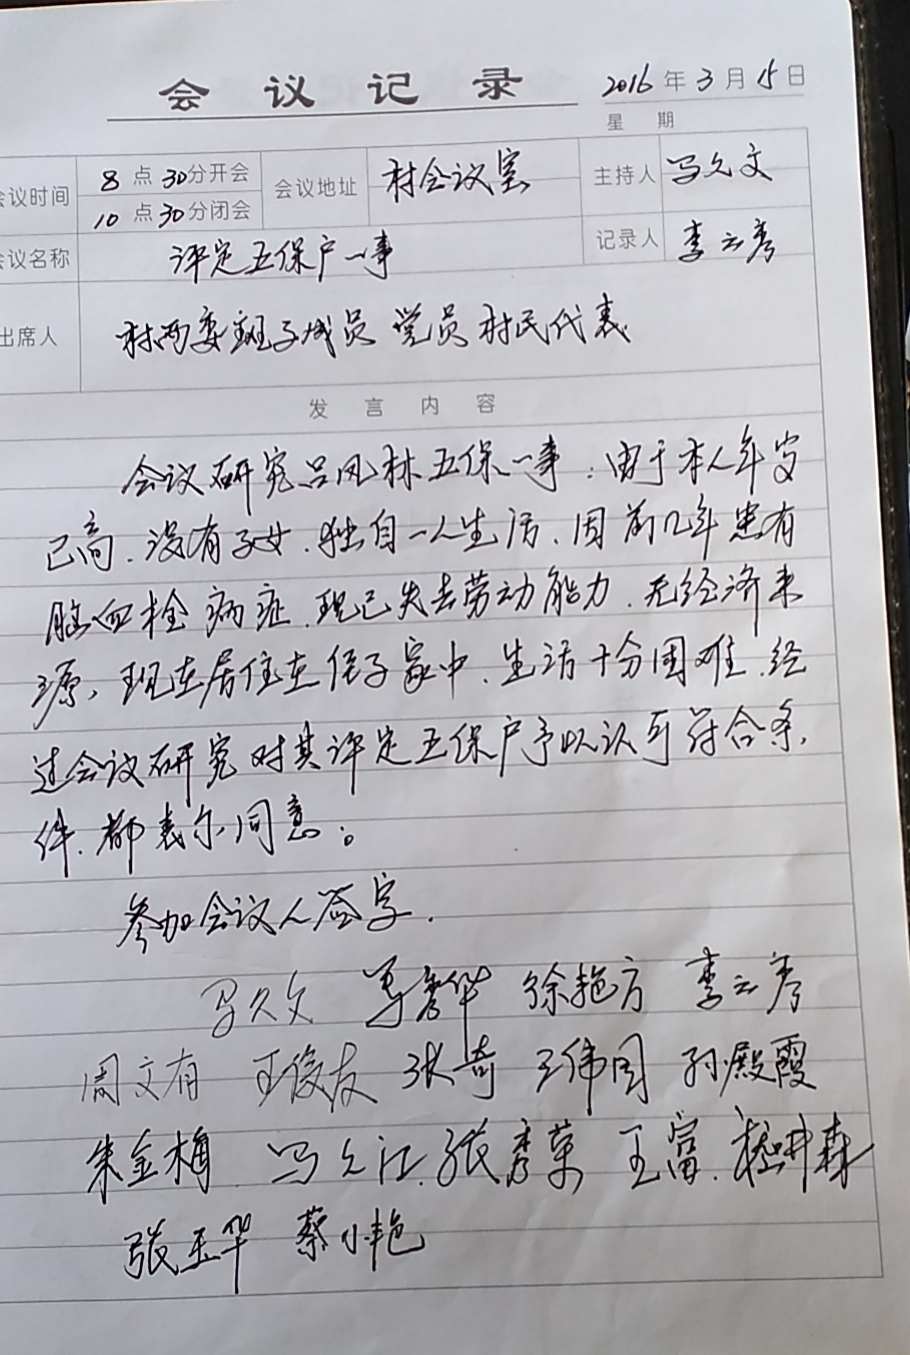 会议记录 2016年3月15日
星期
会议时间 8点30分开会 会议地址 村会议室 主持人 马久文
10点30分闭会
会议名称 评定五保户一事 记录人 李云彦
出席人 村两委班子成员 党员 村民代表
发言内容
会议研究吕凤林五保一事:由于本人年岁
已高、没有子女、独自一人生活、因前几年患有
脑血栓病症、现已失去劳动能力、无经济来
源,现在居住在侄子家中、生活十分困难、经
过会议研究对其评定五保户予以认可符合条
件、都表示同意。
参加会议人签字.
马久文 徐艳方 李云彦
周文有 王俊友 张奇 王伟国 孙殿霞
朱金梅 马久江 张秀荣 王富
张玉华 蔡小艳